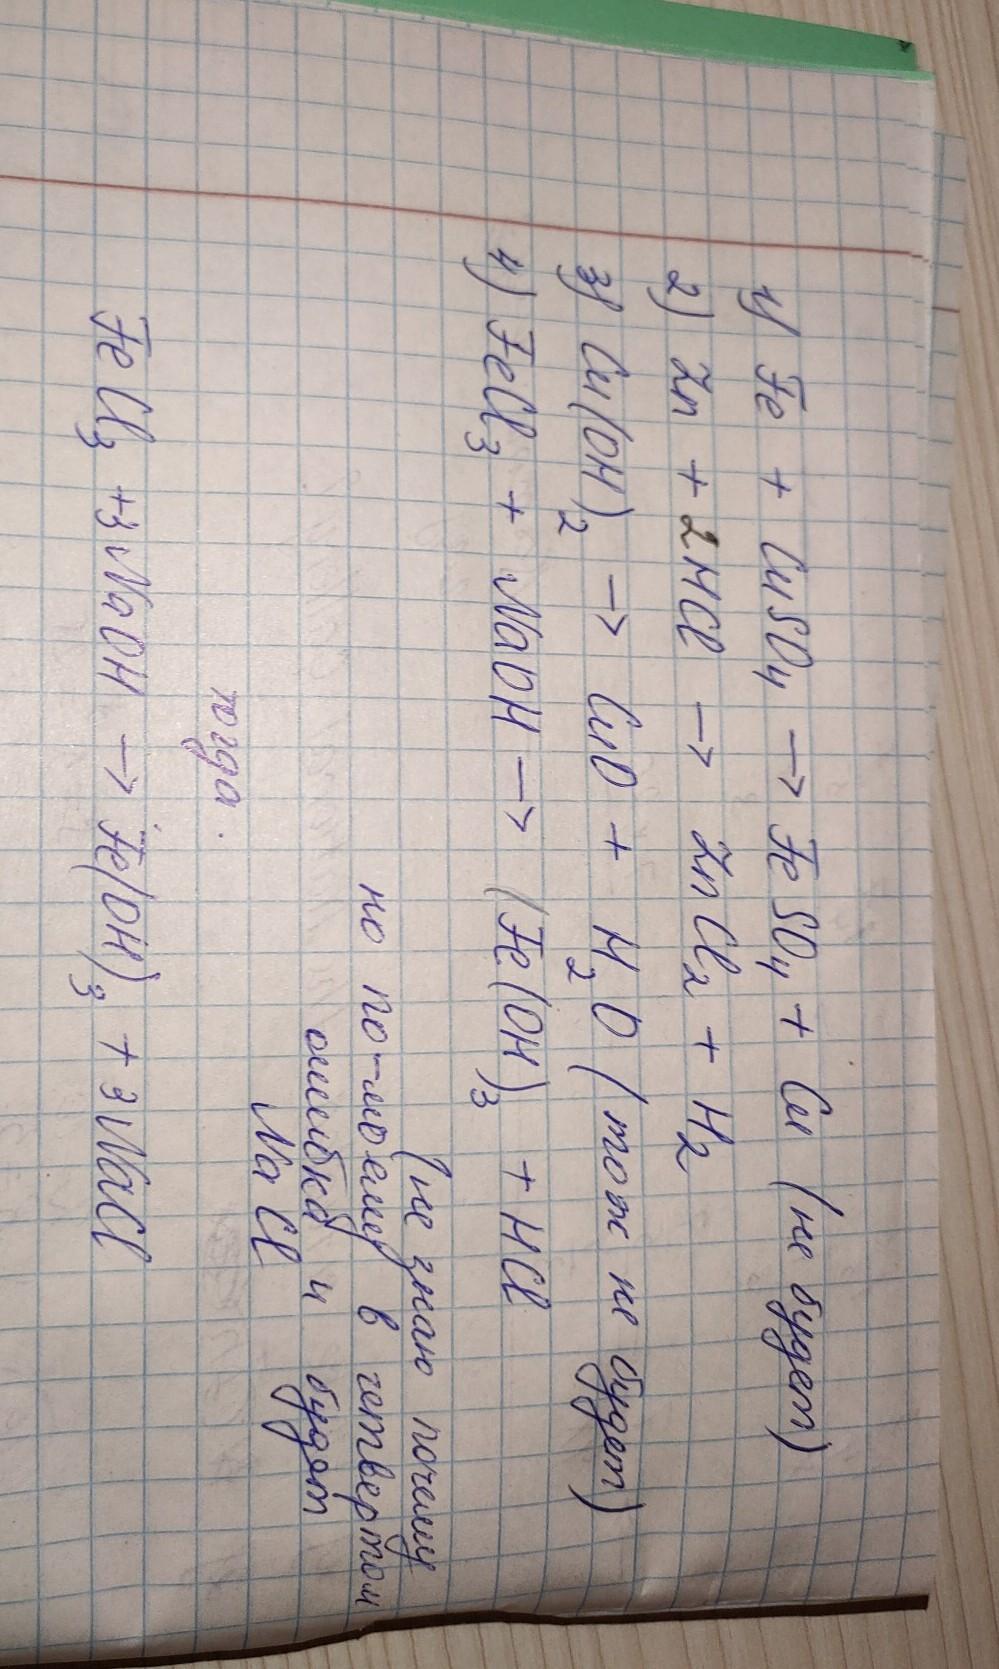 1) Fe + CuSO₄ → FeSO₄ + Cu (не будет)
2) Zn + 2HCl → ZnCl₂ + H₂
3) Cu(OH)₂ → CuO + H₂O (тож не будет)
4) FeCl₃ + NaOH → (Fe(OH)₃ + HCl
(не знаю почему
но по-моему в четвертом
ошибка и будет
NaCl
тогда.
FeCl₃ + 3NaOH → Fe(OH)₃ + 3NaCl